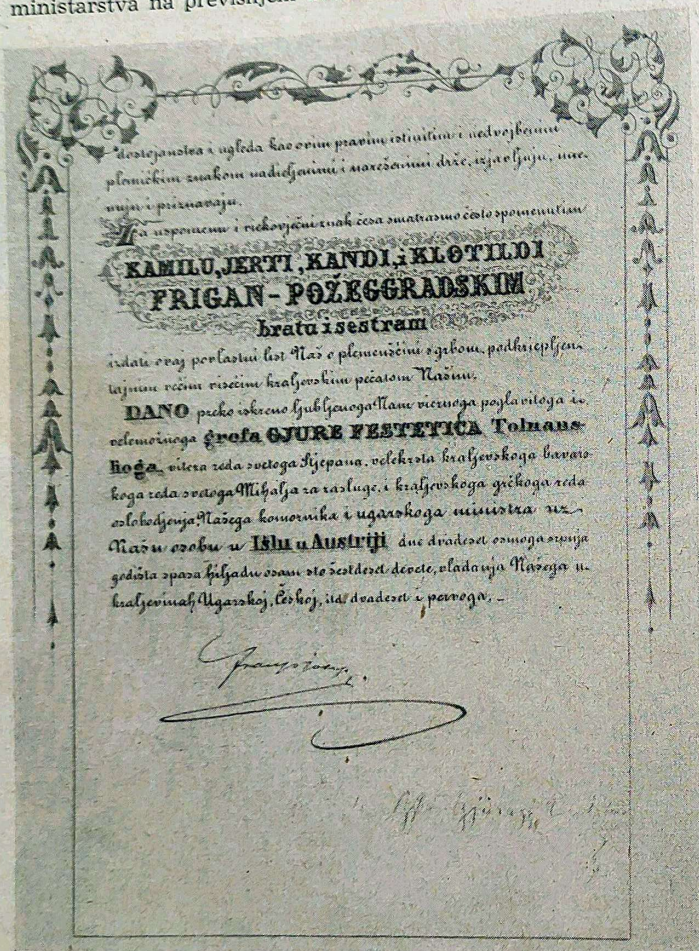 ministarstva na previšnjem
dostojanstva i ugleda kao ovim pravim istinitim i nedvojbenim
plemićkim znakom nadieljenimi i narešenimi drže, izjavljuju, ime-
nuju i priznavaju.
Za uspomenu i viekovječni znak česa smatrasmo često spomenutim
KAMILU, JERTI, KANDI, i KLOTILDI
FRIGAN-POŽEGGRADSKIM
bratu i sestram
izdati ovaj povlastni list Naš o plemenščini s grbom, podkriepljen
tajnim većim visećim kraljevskim pečatom Našim.
DANO preko iskreno ljubljenoga Nam viernoga poglavitoga i
velemožnoga grofa GJURE FESTETIĆA Tolnans-
koga, viteza reda svetoga Stjepana, velekrsta kraljevskoga bavars-
koga reda svetoga Mihalja za zasluge, i kraljevskoga grčkoga reda
oslobodjenja, Našega komornika i ugarskoga ministra uz
Našu osobu u Išlu u Austriji dne dvadeset osmoga srpnja
godišta spasa hiljadu osam sto šestdeset devete, vladanja Našega u
kraljevinah Ugarskoj, Českoj, itd. dvadeset i prvoga. –